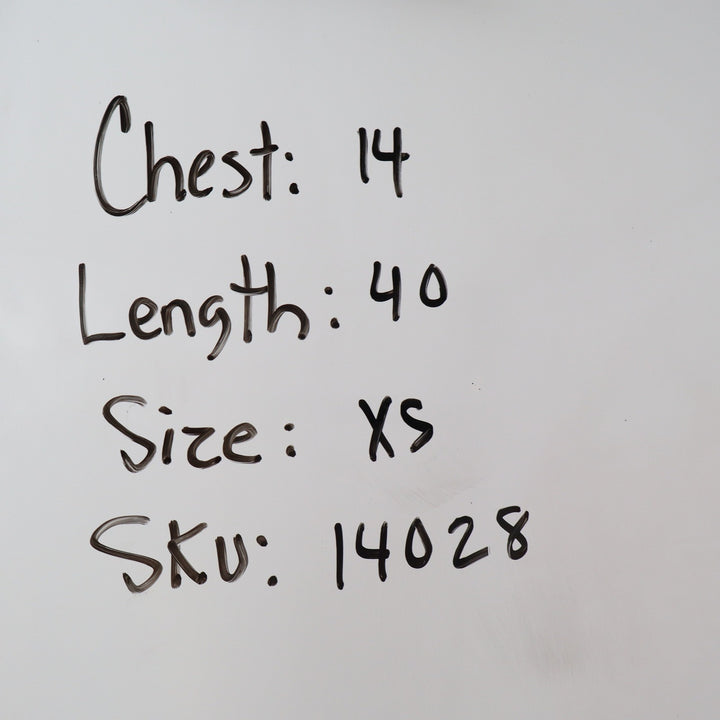 Chest: 14
Length: 40
Size: XS
SKU: 14028